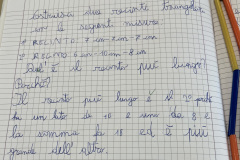 costruisci due recinti triangolari
con le seguenti misure
1° RECINTO 7 cm - 7 cm - 7 cm
2° RECINTO 6 cm - 10 cm - 8 cm
Qual è il recinto più lungo?
Perché?
Il recinto più lungo è il 2° perché
ha un lato da 10 e uno da 8 e
la somma fa 18 ed è più
grande dell'altro.